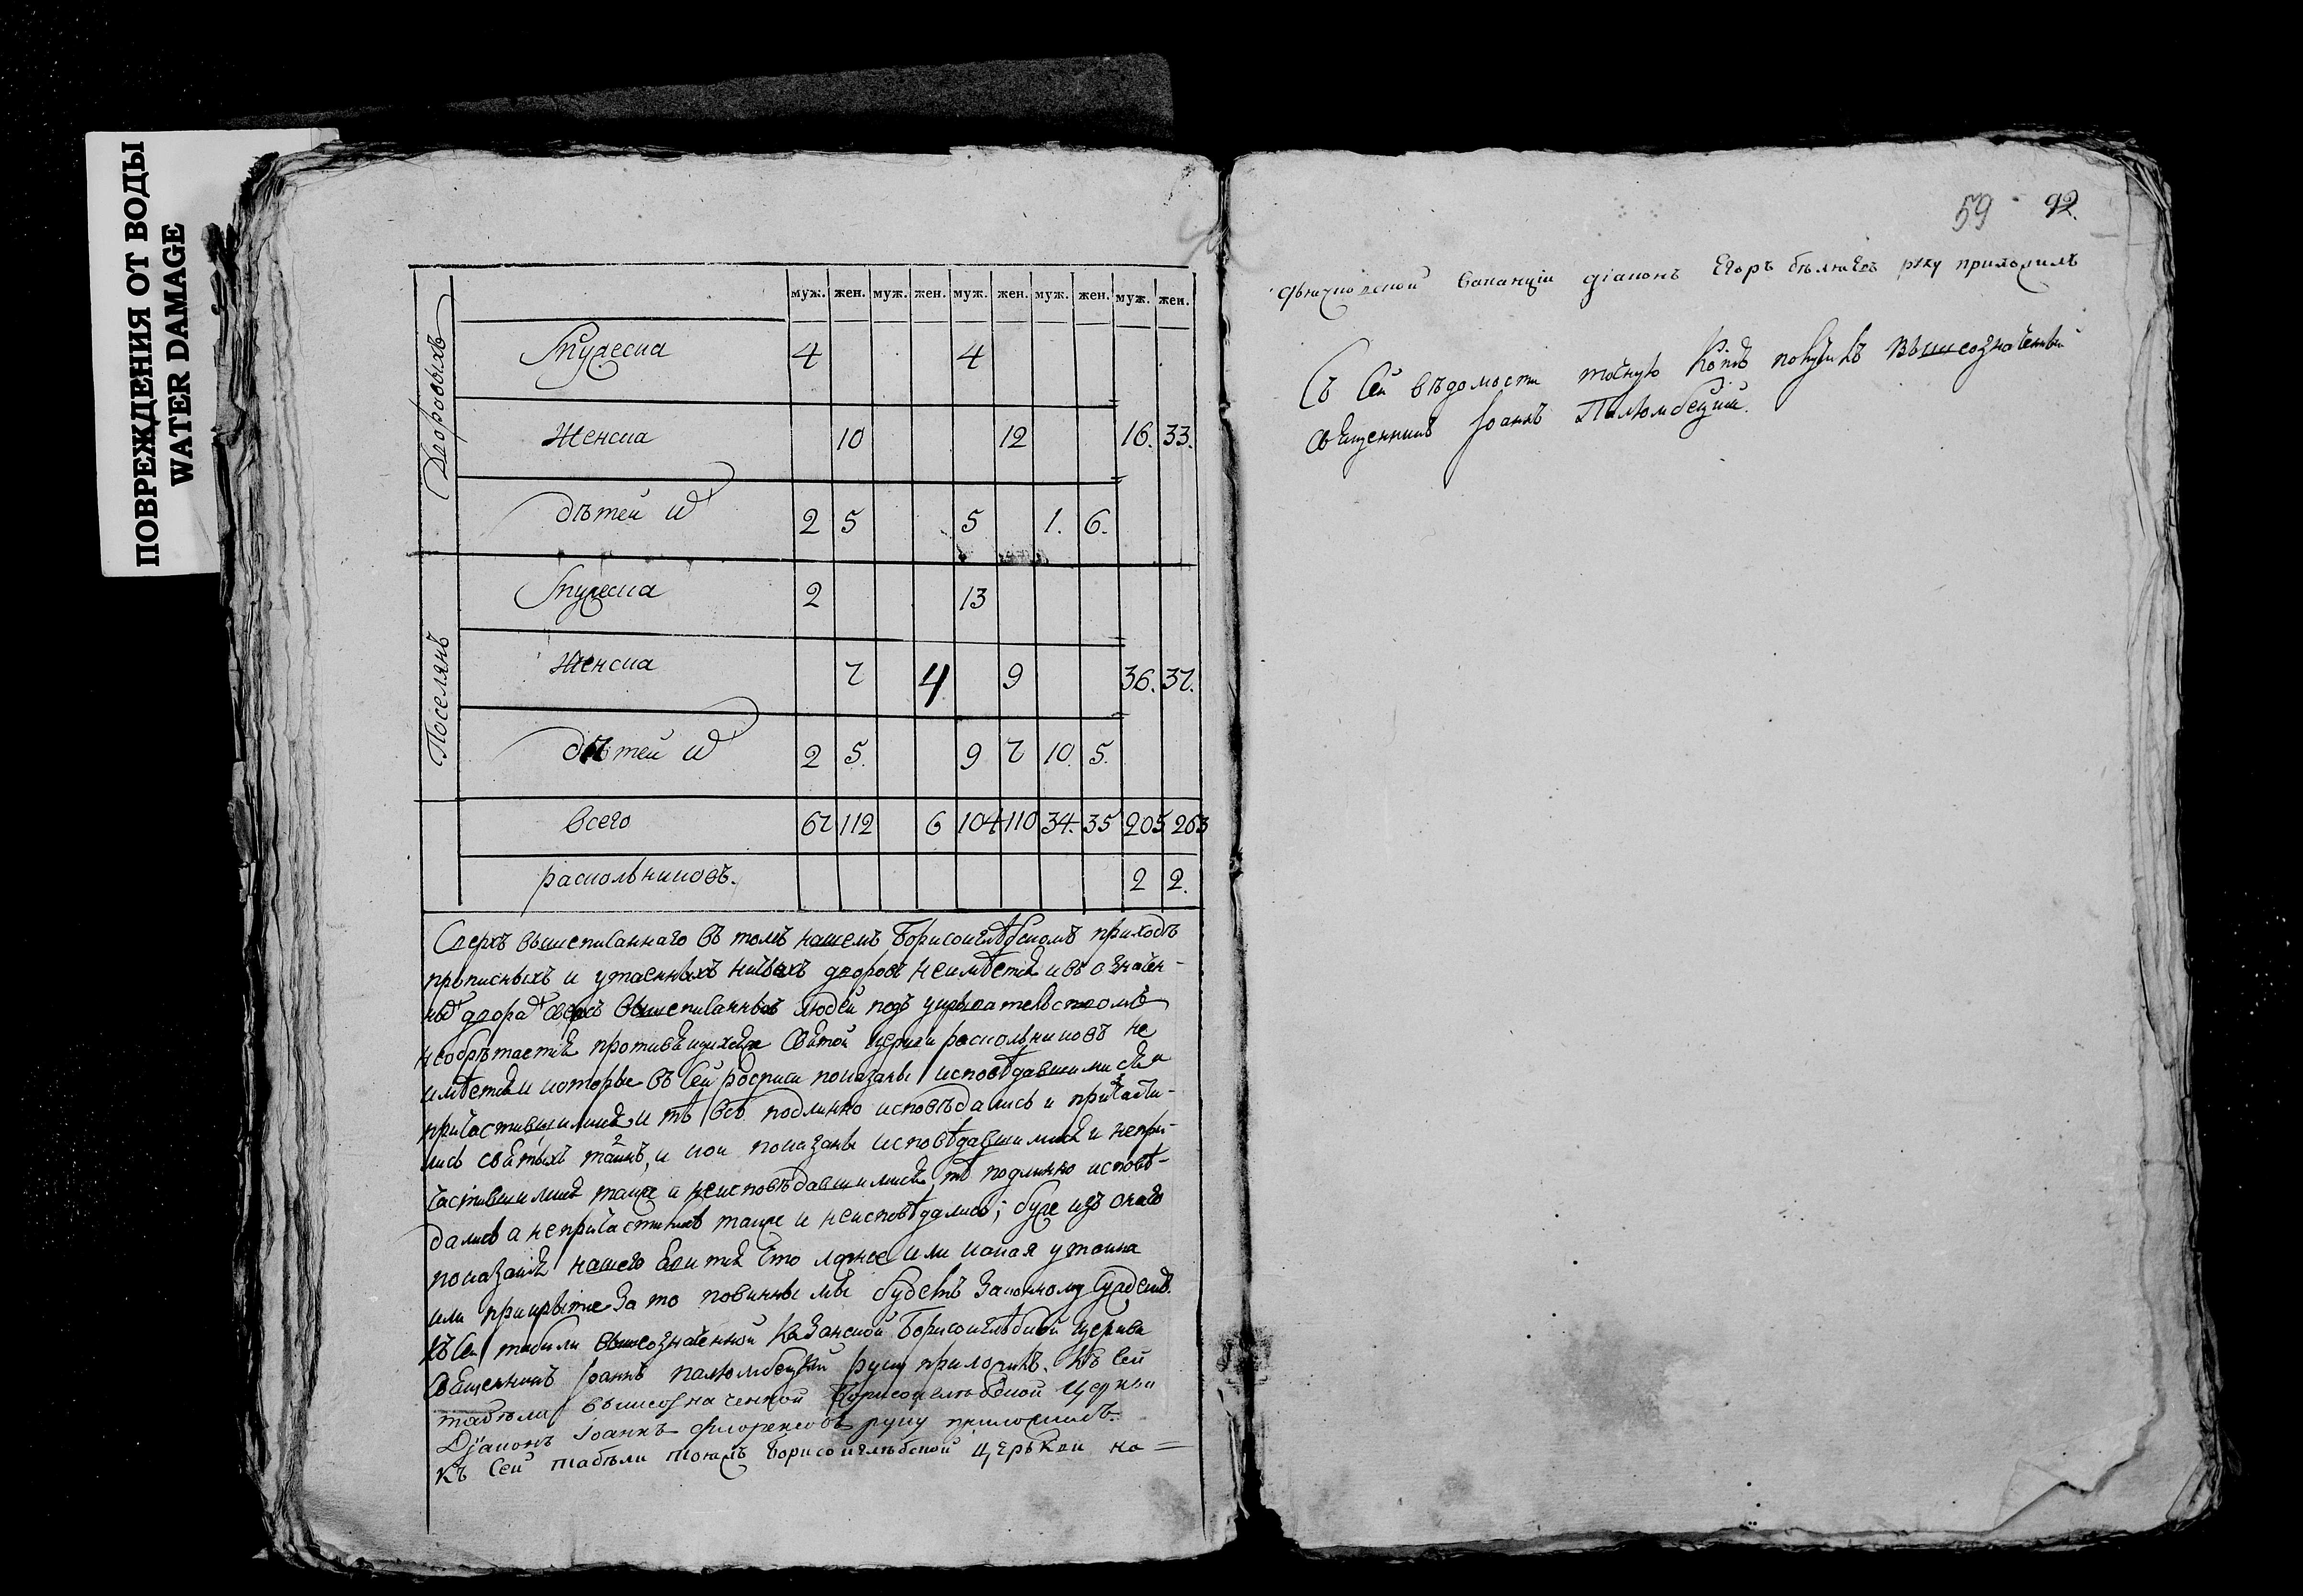 ПОВРЕЖДЕНИЯ ОТ ВОДЫ
WATER DAMAGE
муж. жен. муж. жен. муж. жен. муж. жен. муж. жен.
Дворовыхъ
Мужеска 4 4
Женска 10 12 16. 33.
дѣтей ихъ 2 5 5 1. 6.
Поселянъ
Мужеска 2 13
Женска 7 4 9 36. 37.
дѣтей ихъ 2 5. 9 7 10. 5.
всего 67 112 6 104 110 34. 35 205 263
раскольниковъ. 2 2.
Сверхъ вышеписаннаго въ томъ нашемъ Борисоглѣбскомъ приходѣ
прописныхъ и утаенныхъ никакихъ дворовъ неимѣется и въ означен-
ныхъ дворахъ сверхъ вышеписанныхъ людей подъ укрывательствомъ
необрѣтается противящихся Святой церкви раскольниковъ не
имѣется и которые въ сей росписи показаны исповѣдавшимися и
причастившимися и тѣ всѣ подлинно исповѣдались и причасти-
лись святыхъ таинъ, и кои показаны исповѣдавшимися и непри-
частившимися также и неисповѣдавшимися, тѣ подлинно исповѣ-
дались а непричастились также и неисповѣдались; буде изъ онаго
показанія нашего явится что ложное или какая утайка
или прикрытие за то повинны мы будемъ законному сужденію.
Къ сей табели вышеозначенной Казанской Борисоглѣбской церкви
Священникъ Iоаннъ Палюмбецкий руку приложилъ. Къ сей
табели вышеозначенной Борисоглѣбской Церкви
Дiаконъ Iоаннъ Флоренсовъ руку приложилъ.
Къ сей табѣли тояжъ Борисоглѣбской церькви на =
59 92.
дьячковской ваканцiи дiаконъ Егоръ руку приложилъ
Съ сей вѣдомости точную Копию получилъ вышеозначенный
священникъ Iоаннъ Палюмбецкий.